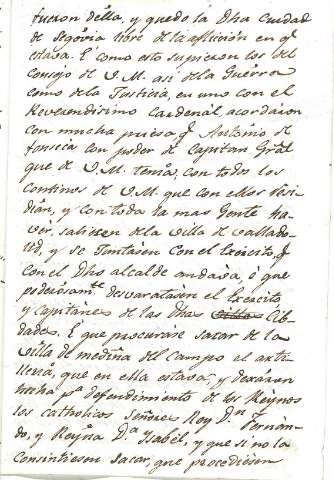 fueron della, y quedo la Dha Ciudad
de Segovia libre de la aflicción en q̃
estava. E como esto supieron los del
Consejo de V. M. asi de la Guerra
como de la Justicia, en uno con el
Reverendisimo Cardenal, acordaron
con mucha priesa, q̃ Antonio de
fonseca con poder de Capitan Gral
que de V. M. tenia, con todos los
Continos de V. M. que con ellos resi-
dian, y con toda la mas Gente
saliesen de la Villa de Vallado-
lid, y se Juntasen con el Exercito, q̃
con el Dho alcalde andava, é que
poderosamte. desvaratasen el Exercito
y capitanes de las Dhas Villas Cib-
dades. E que procurase sacar de la
Villa de medina del Campo el arti-
lleria, que en ella estava, y dexaron
hecha pa. defendimiento de los Reynos
los catholicos Señores Rey Dn. Fernan-
do, y Reyna Da. Isabel, y que si no la
Consintiesen sacar, que procediesen